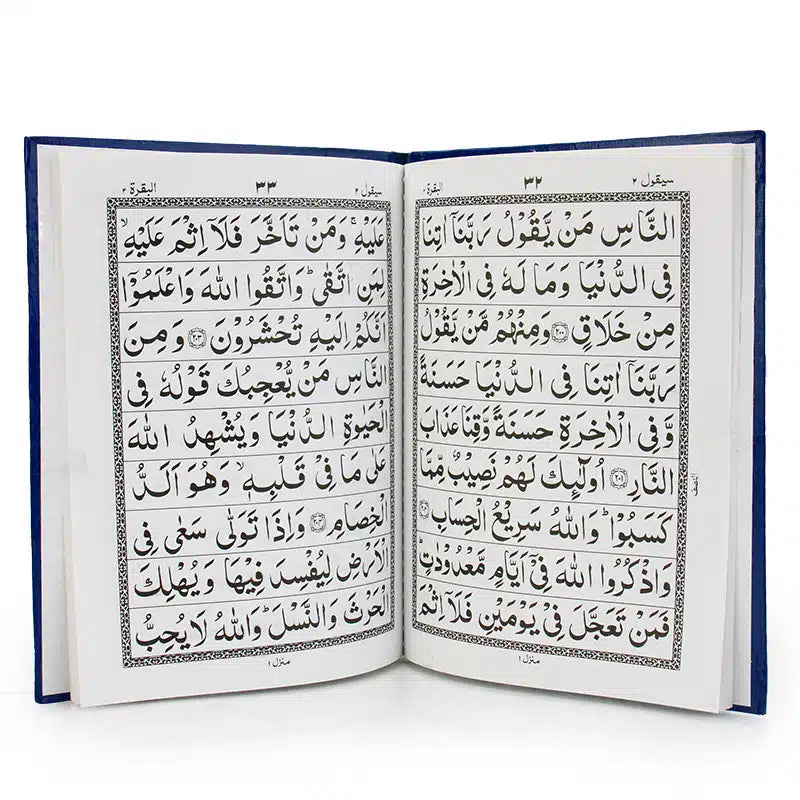 سيقول ٢ ٣٢ البقرة ٢
النَّاسِ مَنْ يَّقُوْلُ رَبَّنَاۤ اٰتِنَا
فِى الدُّنْيَا وَمَا لَهٗ فِى الْاٰخِرَةِ
مِنْ خَلَاقٍ ﴿٢٠٠﴾ وَمِنْهُمْ مَّنْ يَّقُوْلُ
رَبَّنَاۤ اٰتِنَا فِى الدُّنْيَا حَسَنَةً
وَّفِى الْاٰخِرَةِ حَسَنَةً وَّقِنَا عَذَابَ
النَّارِ ﴿٢٠١﴾ اُولٰٓئِكَ لَهُمْ نَصِيْبٌ مِّمَّا
النصف
كَسَبُوْا ؕ وَاللّٰهُ سَرِيْعُ الْحِسَابِ ﴿٢٠٢﴾
وَاذْكُرُوا اللّٰهَ فِىْۤ اَيَّامٍ مَّعْدُوْدٰتٍ ؕ
فَمَنْ تَعَجَّلَ فِىْ يَوْمَيْنِ فَلَاۤ اِثْمَ
منزل ١
سيقول ٢ ٣٣ البقرة ٢
عَلَيْهِ ۚ وَمَنْ تَاَخَّرَ فَلَاۤ اِثْمَ عَلَيْهِ ۙ
لِمَنِ اتَّقٰى ؕ وَاتَّقُوا اللّٰهَ وَاعْلَمُوْۤا
اَنَّكُمْ اِلَيْهِ تُحْشَرُوْنَ ﴿٢٠٣﴾ وَمِنَ
النَّاسِ مَنْ يُّعْجِبُكَ قَوْلُهٗ فِى
الْحَيٰوةِ الدُّنْيَا وَيُشْهِدُ اللّٰهَ
عَلٰى مَا فِىْ قَلْبِهٖ ۙ وَهُوَ اَلَدُّ
الْخِصَامِ ﴿٢٠٤﴾ وَاِذَا تَوَلّٰى سَعٰى فِى
الْاَرْضِ لِيُفْسِدَ فِيْهَا وَيُهْلِكَ
الْحَرْثَ وَالنَّسْلَ ؕ وَاللّٰهُ لَا يُحِبُّ
منزل ١